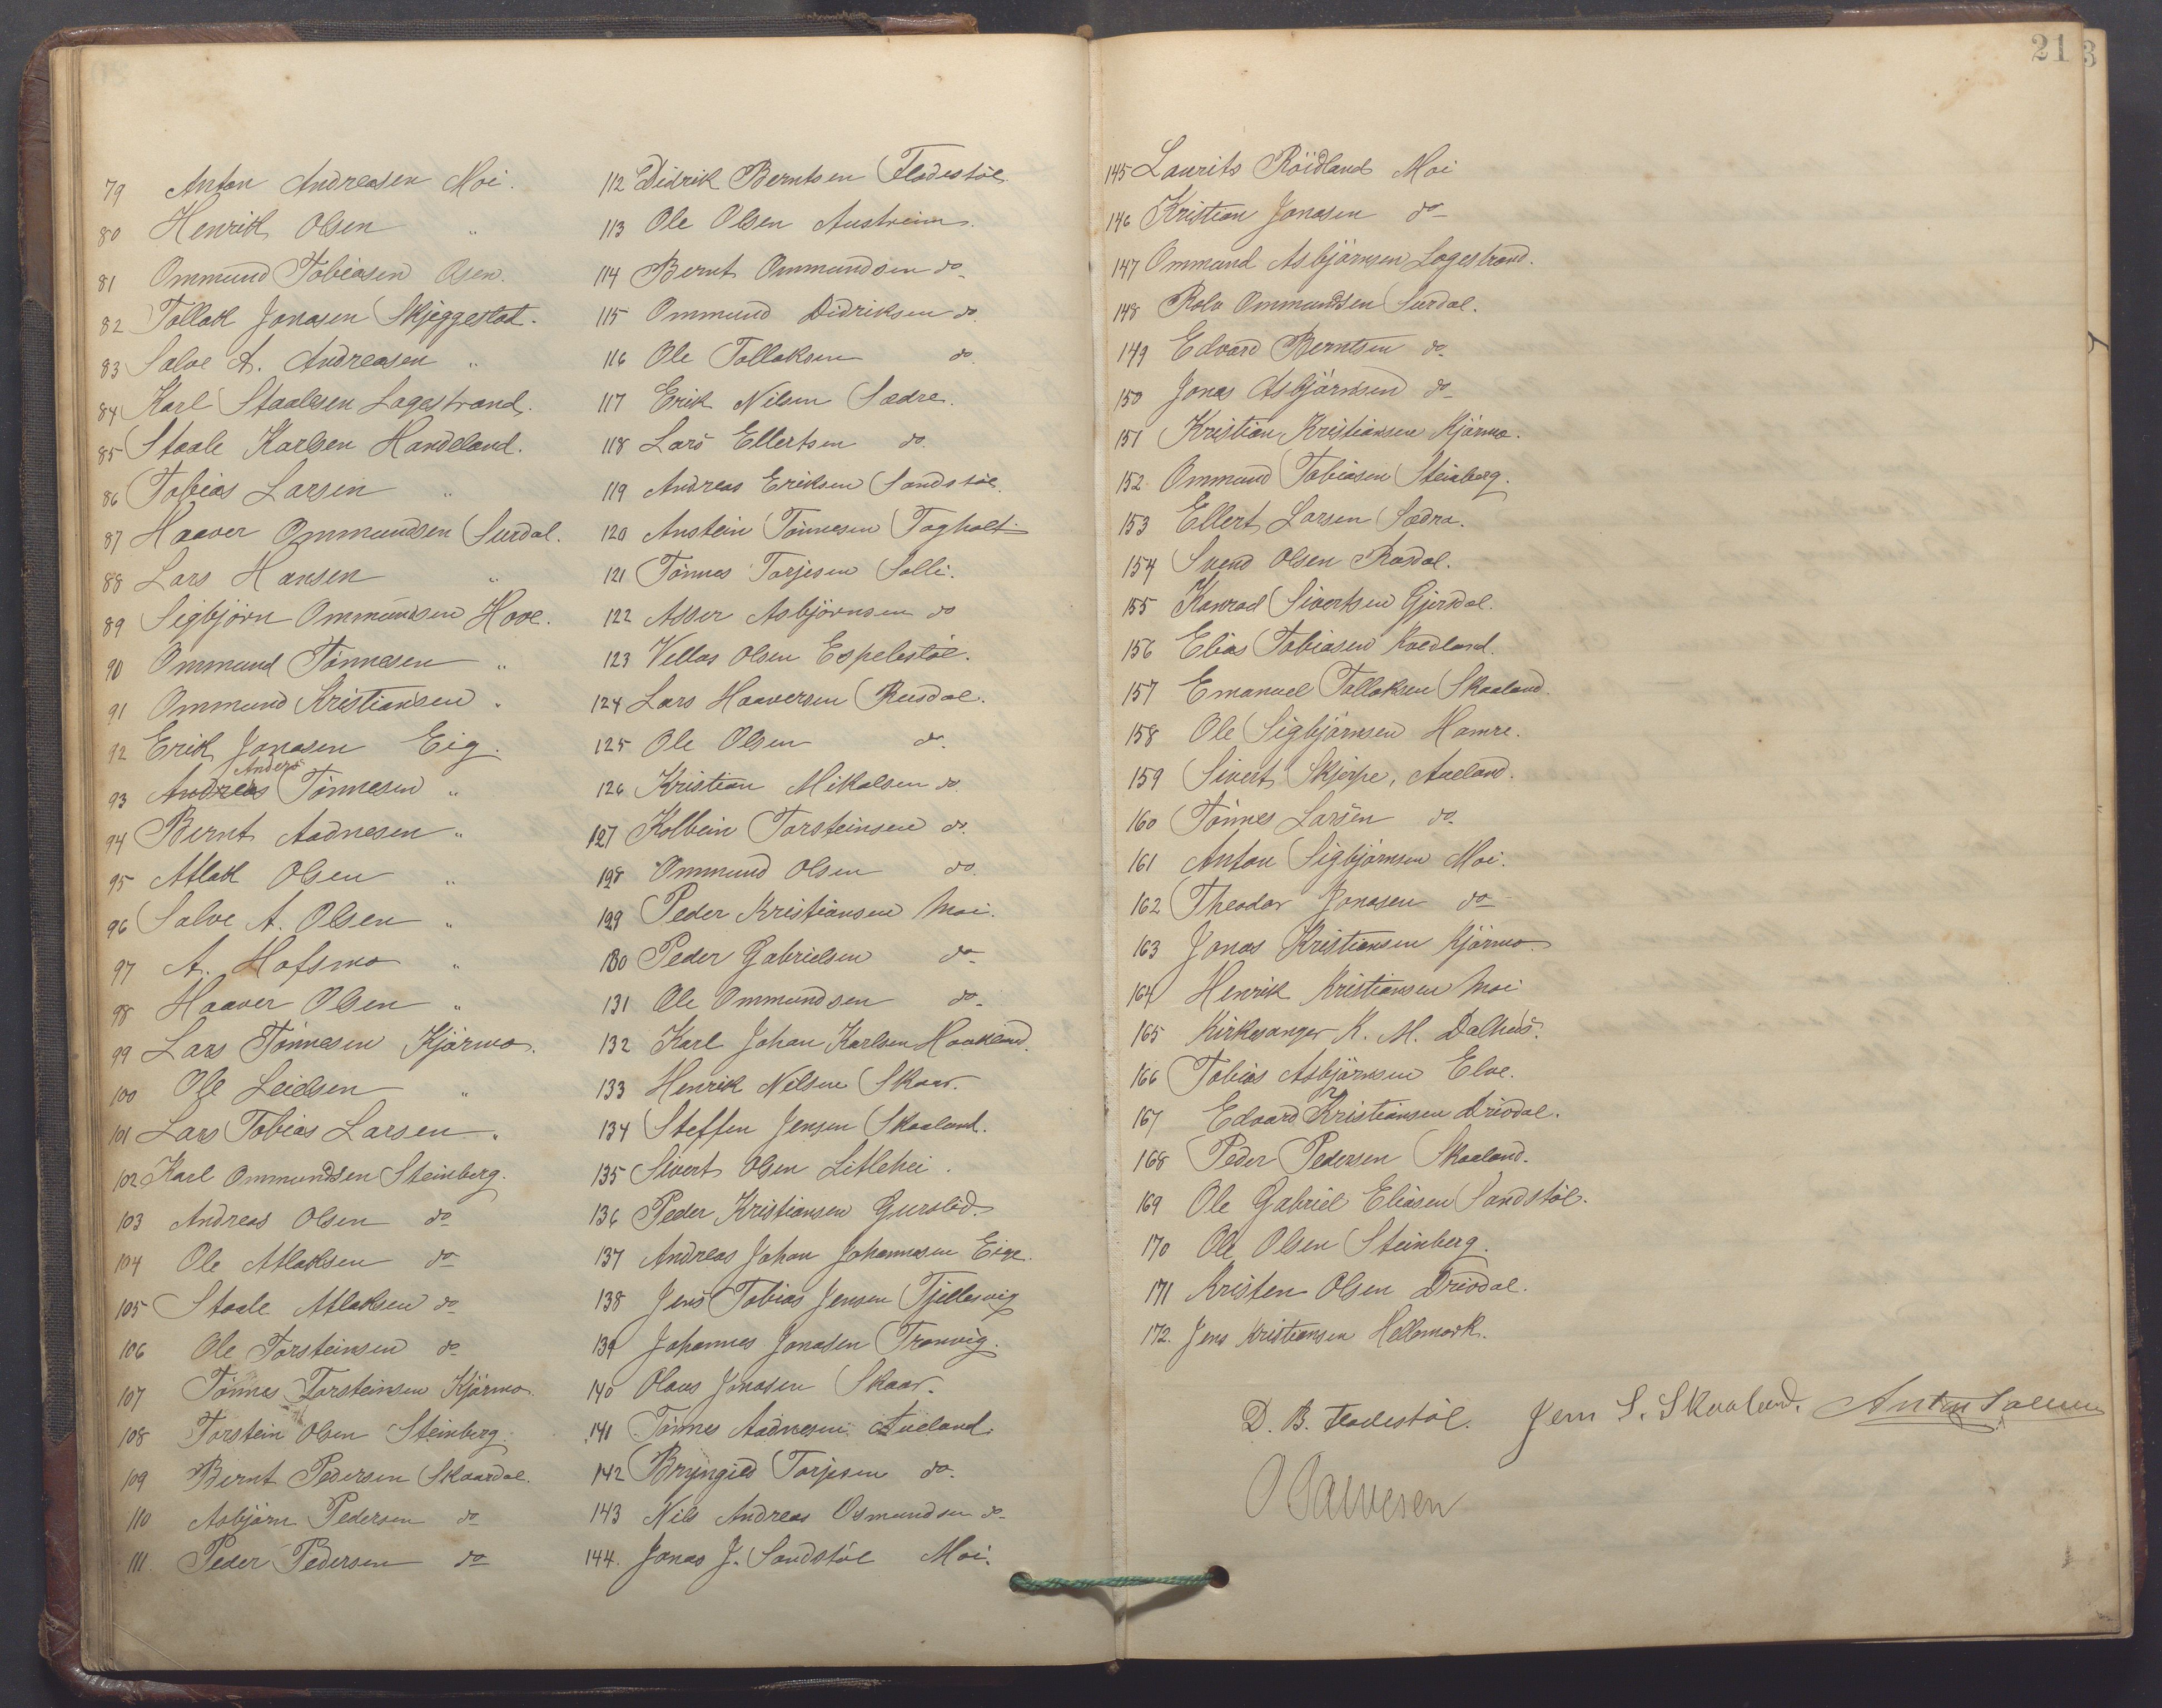 21
3
79 Anton Andreasen Moi.
80 Henrik Olsen "
81 Ommund Tobiasen Osen.
82 Tollak Jonasen Skjeggestad.
83 Salve A. Andreasen "
84 Karl Staalesen Lagestrand.
85 Staale Karlsen Handeland.
86 Tobias Larsen "
87 Haaver Ommundsen Surdal.
88 Lars Hansen "
89 Sigbjörn Ommundsen Hove.
90 Ommund Tönnesen "
91 Ommund Kristiansen "
92 Erik Jonasen Eig.
Anders
93 Andreas Tönnesen "
94 Bernt Aadnesen "
95 Atlak Olsen "
96 Salve A. Olsen "
97 A. Hofsmo "
98 Haaver Olsen "
99 Lars Tönnesen Kjörmo.
100 Ole Leidsen "
101 Lars Tobias Larsen "
102 Karl Ommundsen Steinberg.
103 Andreas Olsen do
104 Ole Atlaksen do
105 Staale Atlaksen do
106 Ole Torsteinsen do
107 Tönnes Torsteinsen Kjörmo.
108 Torstein Olsen Steinberg.
109 Bernt Pedersen Skaardal.
110 Asbjörn Pedersen do
111. Peder Pedersen do
112 Didrik Berntsen Fladestöl.
113 Ole Olsen Austreim.
114 Bernt Ommundsen do
115 Ommund Didriksen do.
116 Ole Tollaksen do.
117 Erik Nilsen Sædre.
118 Lars Ellertsen do.
119 Andreas Eriksen Sandstöl.
120 Anstein Tönnesen Tagholt
121 Tönnes Torjesen Solli.
122 Asser Asbjörnsen do
123 Vellas Olsen Espelestöl.
124 Lars Haaversen Rusdal.
125 Ole Olsen do.
126 Kristian Mikalsen do.
127 Kolbein Torsteinsen do.
128 Ommund Olsen do.
129 Peder Kristiansen Moi.
130 Peder Gabrielsen do
131 Ole Ommundsen do.
132 Karl Johan Karlsen Haakland.
133 Henrik Nilsen Skaar.
134 Steffen Jensen Skaaland.
135 Sivert Olsen Litlehei.
136 Peder Kristiansen Gursläd.
137 Andreas Johan Johannesen Eige.
138 Jens Tobias Jensen Tjellesvig
139 Johannes Jonasen Tronvig.
140 Olaus Jonasen Skaar.
141 Tönnes Aadnesen Aueland.
142 Bryngild Torjesen do.
143 Nils Andreas Osmundsen do
144. Jonas J. Sandstöl Moi.
145 Laurits Röidland Moi
146 Kristian Jonasen do
147 Ommund Asbjörnsen Logestrand.
148 Rolv Ommundsen Surdal.
149 Edvard Berntsen do
150 Jonas Asbjörnsen do
151 Kristian Kristiansen Kjörmo.
152 Ommund Tobiasen Steinberg.
153 Ellert Larsen Sædra.
154 Svend Olsen Rosdal.
155 Konrad Sivertsen Gjersdal.
156 Elias Tobiasen Kvedland.
157 Emanuel Tollaksen Skaaland.
158 Ole Sigbjörnsen Hamre.
159 Sivert Skjerpe, Aueland.
160 Tönnes Larsen do.
161 Anton Sigbjörnsen Moi.
162 Theodor Jonasen do
163 Jonas Kristiansen Kjörmo.
164 Henrik Kristiansen Moi
165 Kirkesanger K. M. Dalhus.
166 Tobias Asbjörnsen Elve.
167 Edvard Kristiansen Drivdal.
168 Peder Pedersen Skaaland.
169 Ole Gabriel Eliasen Sandstöl.
170 Ole Olsen Steinberg.
171 Kristen Olsen Drivdal.
172. Jens Kristiansen Hellemark.
D. B. Fladestöl. Jens S. Skaaland. Anton
O Salvesen